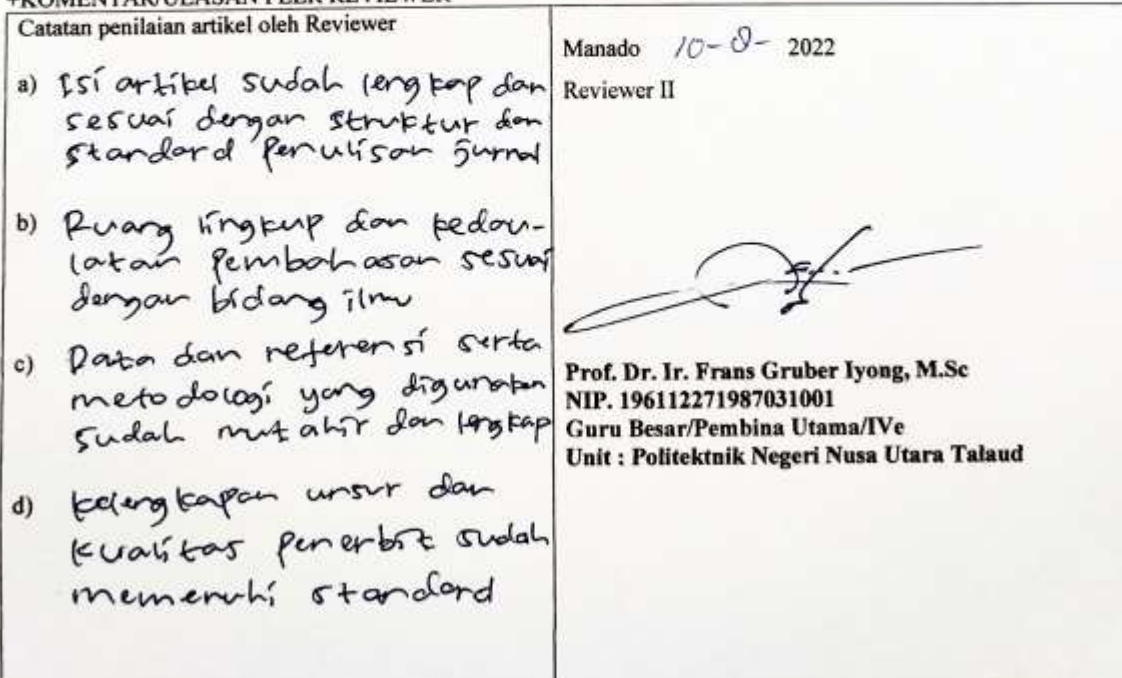 +KOMENTAR/ULASAN PEER REVIEWER
Catatan penilaian artikel oleh Reviewer
a) Isi artikel sudah lengkap dan
sesuai dengan struktur dan
standard penulisan jurnal
b) Ruang lingkup dan kedau-
latan pembahasan sesuai
dengan bidang ilmu
c) Data dan referensi serta
metodologi yang digunakan
sudah mutahir dan lengkap
d) kelengkapan unsur dan
kualitas penerbit sudah
memenuhi standard
Manado 10-8-2022
Reviewer II
Prof. Dr. Ir. Frans Gruber Iyong, M.Sc
NIP. 196112271987031001
Guru Besar/Pembina Utama/IVe
Unit : Politektnik Negeri Nusa Utara Talaud